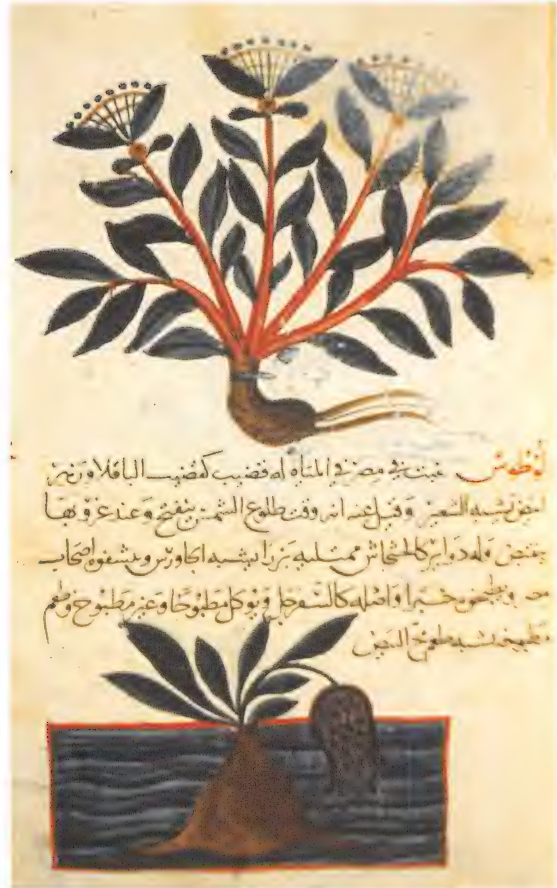 لوطوس ينبت في مصر في المياه له قضيب كقضيب الباقلا وزهر
ابيض يشبه وقيل عنه انه وقت طلوع الشمس ينفتح وعند غروبها
ينقبض وله دواير كالخشاش ممتليه بزرا يشبه الجاورس اصحاب
مصر خبزا واصله كالسفرجل ويوكل مطبوخا وغير مطبوخ وطعم
مطبوخه يشبه طعم مح البيض